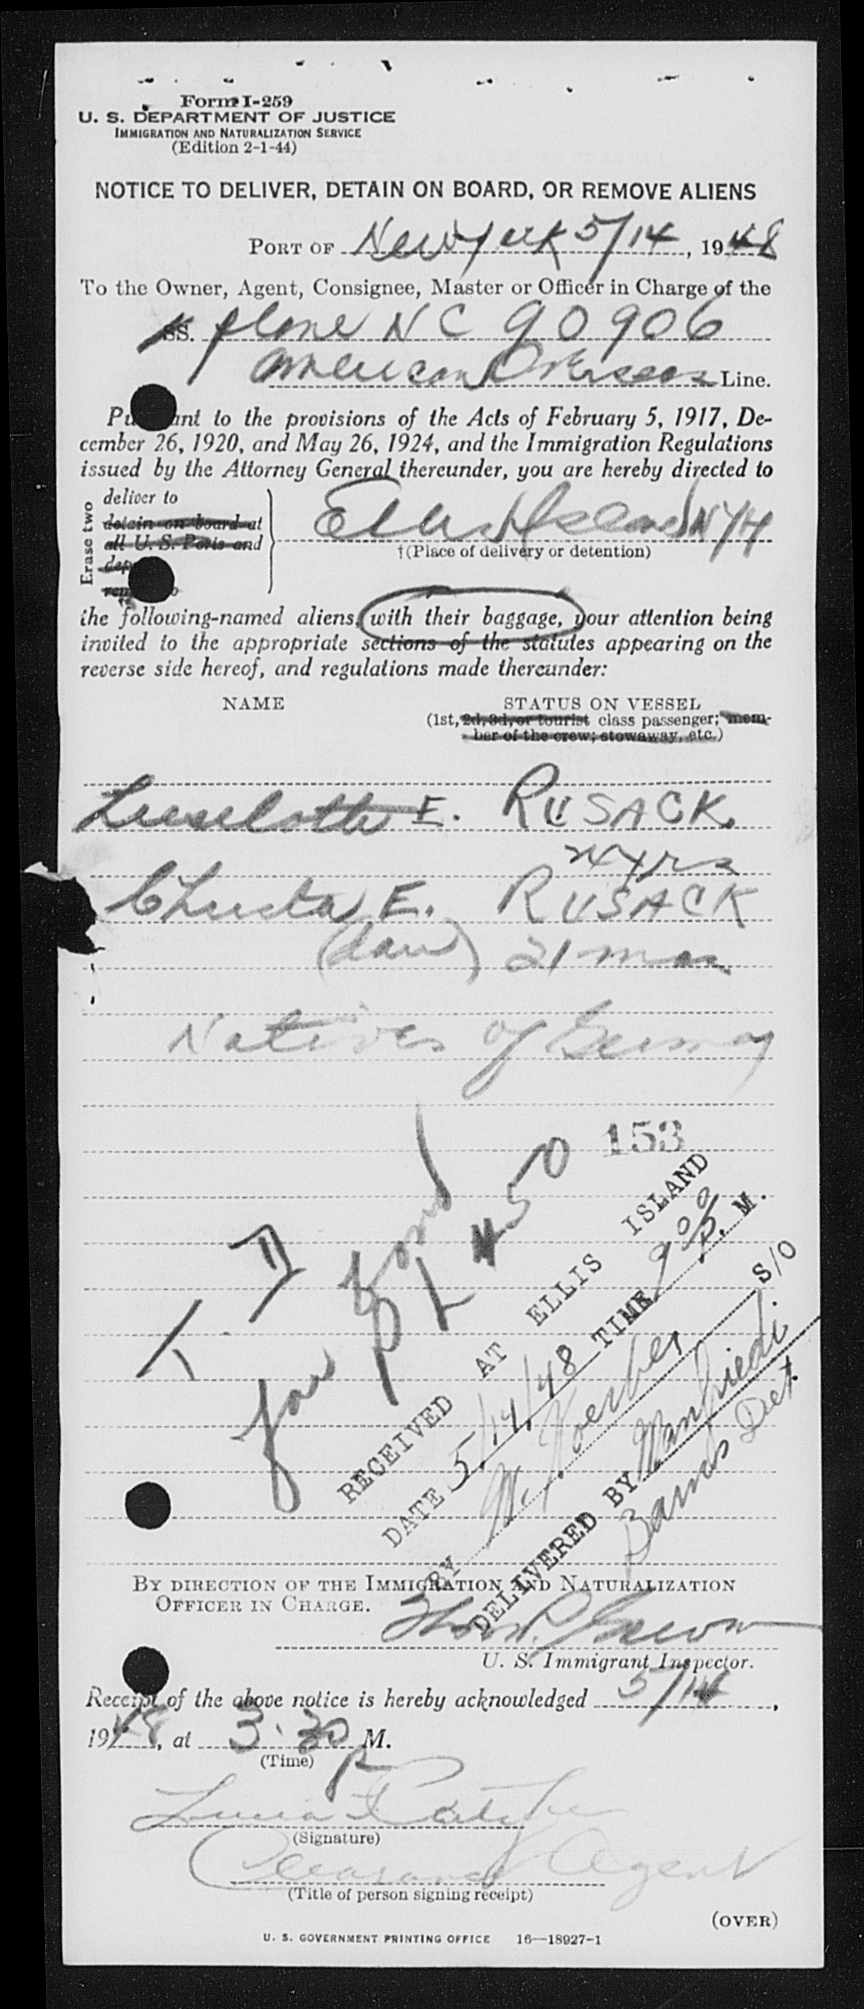 Form I-259
U. S. DEPARTMENT OF JUSTICE
IMMIGRATION AND NATURALIZATION SERVICE
(Edition 2-1-44)
NOTICE TO DELIVER, DETAIN ON BOARD, OR REMOVE ALIENS
PORT OF New York 5/14, 1948
To the Owner, Agent, Consignee, Master or Officer in Charge of the
SS. plane NC 90906
American Overseas Line.
Pursuant to the provisions of the Acts of February 5, 1917, De-
cember 26, 1920, and May 26, 1924, and the Immigration Regulations
issued by the Attorney General thereunder, you are hereby directed to
Erase two
deliver to
detain on board at
all U. S. Ports and
Ellis Island NYH
†(Place of delivery or detention)
the following-named aliens, with their baggage, your attention being
invited to the appropriate sections of the statutes appearing on the
reverse side hereof, and regulations made thereunder:
NAME STATUS ON VESSEL
(1st, 2d, 3d, or tourist class passenger; mem-
ber of the crew; stowaway, etc.)
Lieselotte E. RUSACK
yrs
Christa E. RUSACK
(dau) 21 mos
Natives of Germany
153
T. D
for bond
450
RECEIVED AT ELLIS ISLAND
DATE 5/14/48 TIME 9 00 P. M.
BY S/O
DELIVERED BY Manfredi
Barnes Det
BY DIRECTION OF THE IMMIGRATION AND NATURALIZATION
OFFICER IN CHARGE.
U. S. Immigrant Inspector.
Receipt of the above notice is hereby acknowledged 5/14,
1948, at 3:30 P M.
(Time)
(Signature)
Clearance Agent
(Title of person signing receipt)
(OVER)
U. S. GOVERNMENT PRINTING OFFICE 16—18927-1